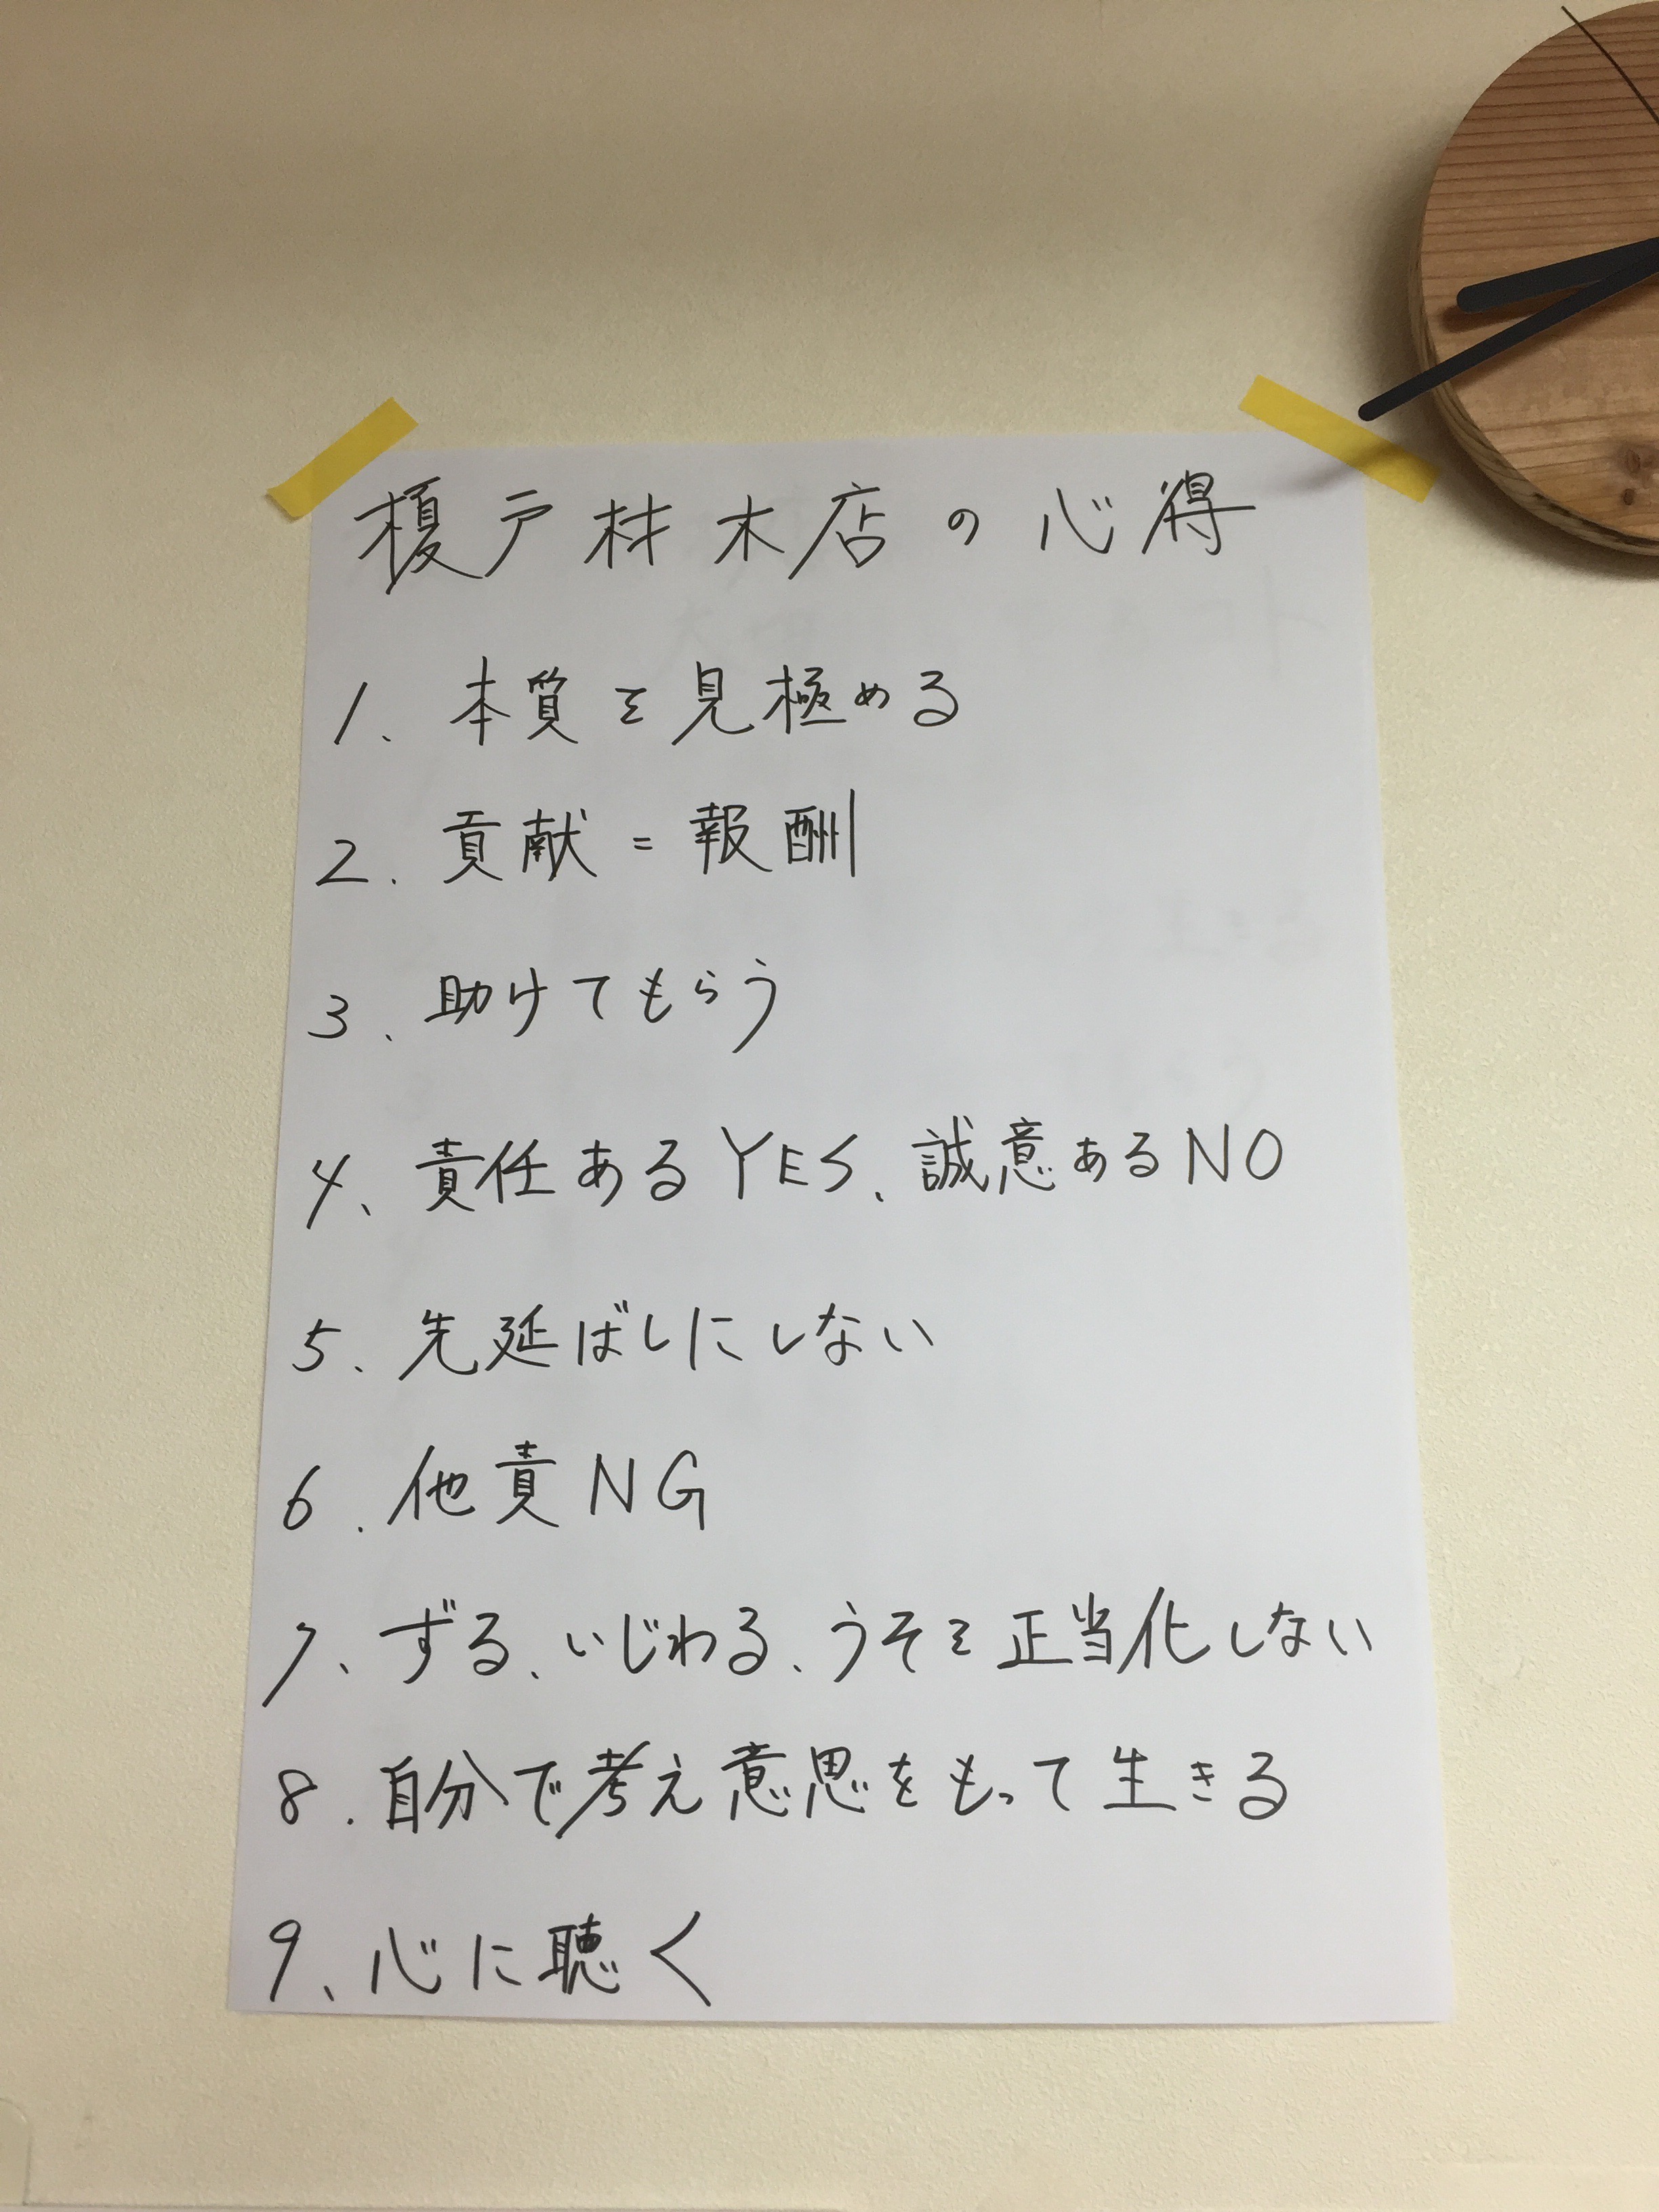 榎戸材木店の心得
1、本質を見極める
2.貢献=報酬
3、助けてもらう
4、責任あるYES、誠意あるNO
5、先延ばしにしない
6.他責NG
7、ずる、いじわる、うそを正当化しない
8.自分で考え意思をもって生きる
9、心に聴く